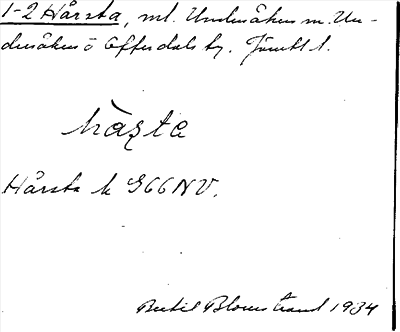 1-2 Hårsta, ml. Undersåkers m. Un-
dersåkers o Offerdals tg. Jämtl l.
hàʂta
Hårsta k G66NV.
Bertil Blomstrand 1934